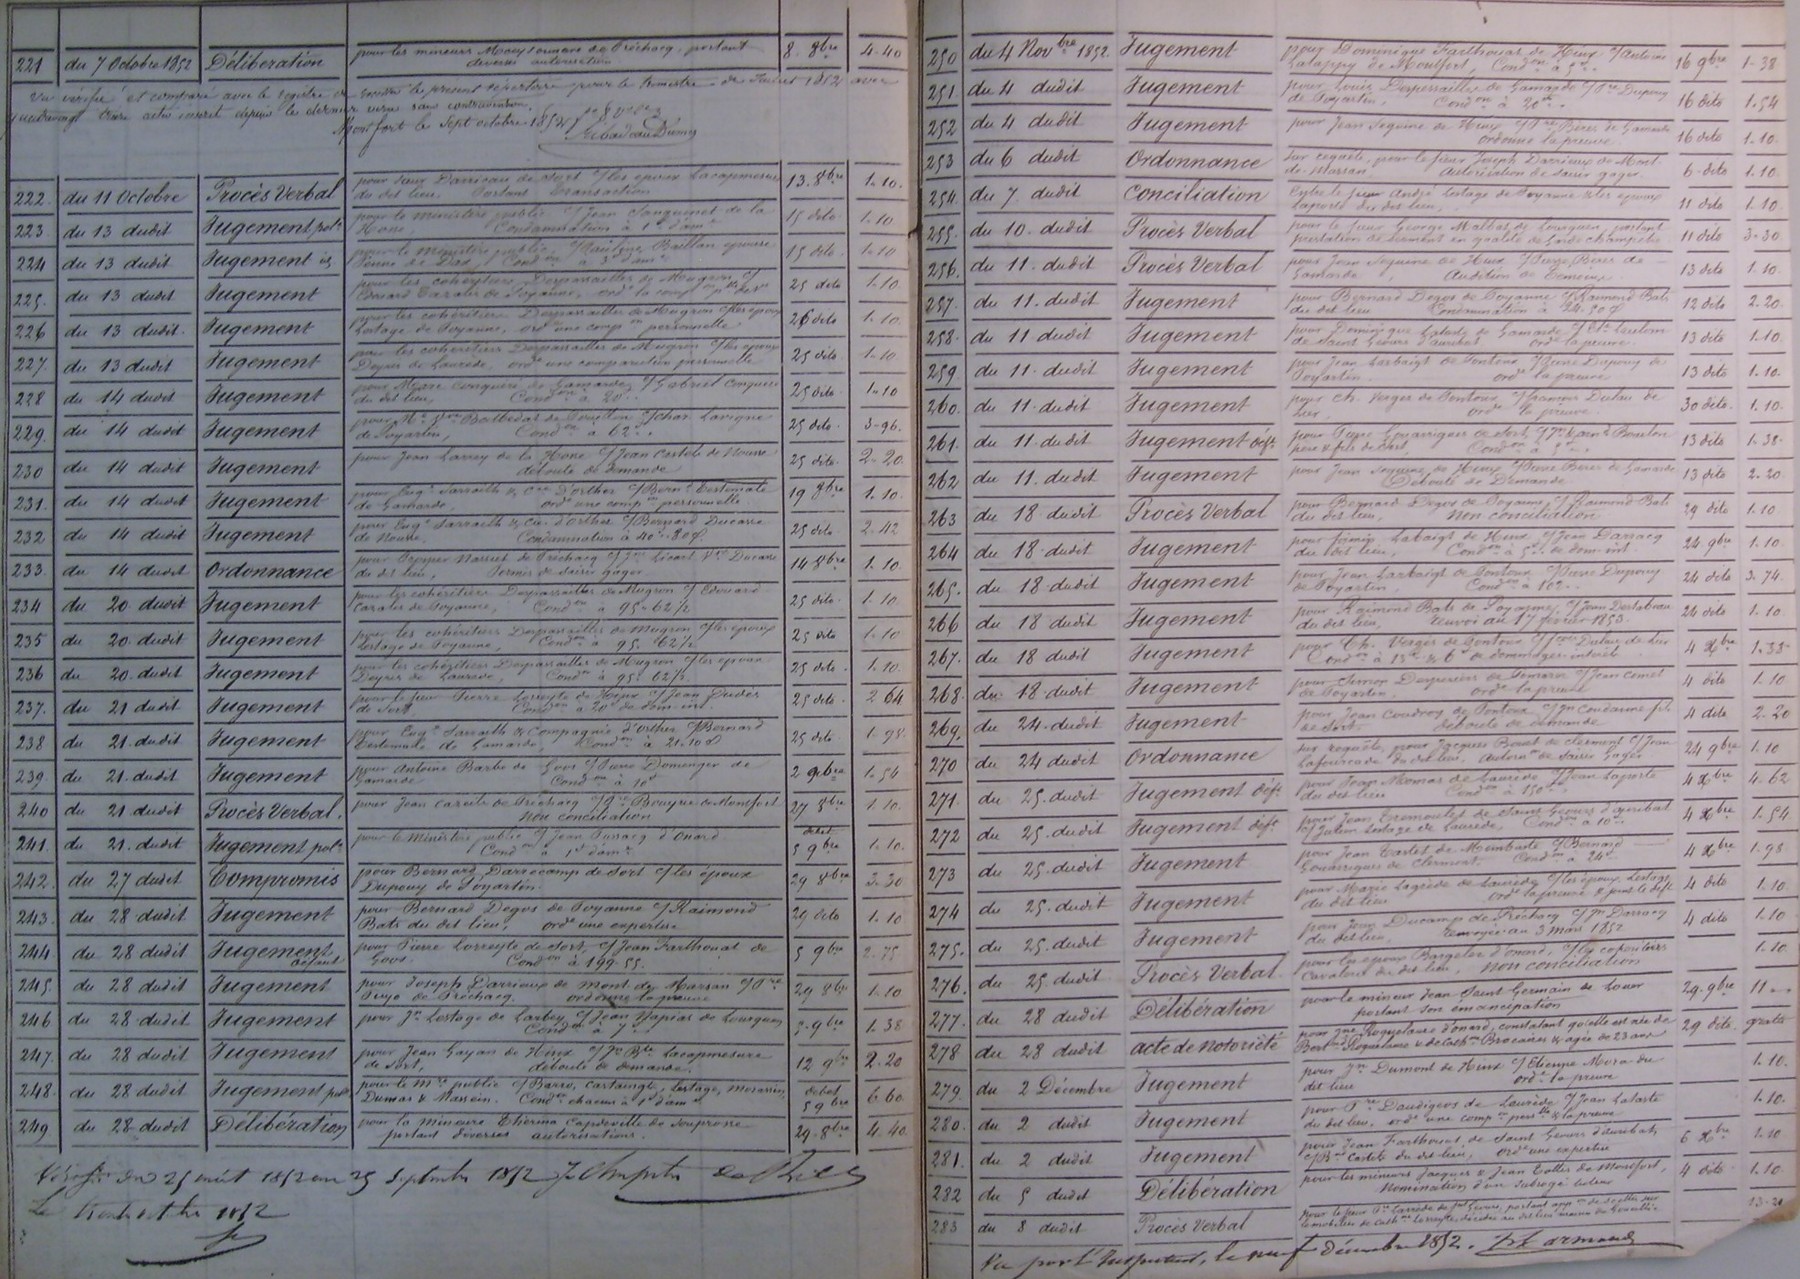 221 du 7 Octobre 1852 Délibération pour les mineurs de Préchacq, portant 8. 8bre 4-40
diverses autorisations
Vu vérifié et comparé avec le registre le présent répertoire pour le trimestre de Juillet 1852 avec
actes inscrit depuis le dernier verso sans contravention.
Montfort le Sept octobre 1852
222 du 11 Octobre Procès Verbal pour Darrieau de Sort c/ les époux Lacapmesure 13. 8bre 1-10.
du dit lieu, Portant transaction
223 du 13 dudit Jugement polce pour le ministère public c/ Jean Sanguinet de la 15 dito 1-10
Hosse, Condamnation à 1f d'amde
224 du 13 dudit Jugement id pour le ministère public, c/ Pauline Baillan épouse 15 dito 1-10
Condon à 3f d'amde
225. du 13 dudit Jugement pour les cohéritiers Despassailles de Mugron c/ 25 dito 1-10
Edouard Cazales de Poyanne, ordt la comp
226 du 13 dudit. Jugement pour les cohéritiers Despassailles de Mugron c/ les époux 26 dito 1-10.
Lestage de Poyanne, ordt une compon personnelle
227. du 13 dudit Jugement pour les cohéritiers Despassailles de Mugron c/ les époux 25 dito 1-10.
Deyris de Laurède, ordt une comparution personnelle
228 du 14 dudit Jugement pour Marie Conquéré de Gamarde, c/ Gabriel Conquéré 25 dito 1-10
du dit lieu, Condon à 20f
229. du 14 dudit Jugement pour Me Balbedat de Pouillon c/ char. Lavigne 25 dito 3-96.
de Poyartin, Condon à 62f
230 du 14 dudit Jugement pour Jean Larrey de la Hosse c/ Jean Castets de Nousse 25 dito 2-20
déboute de demande
231. du 14 dudit Jugement pour Eugne Sarrailh & cie d'orthez c/ Bernd Testemale 19 8bre 1.10.
de Gamarde, ordt une compon personnelle
232 du 14 dudit Jugement pour Eugne Sarrailh & cie d'orthez c/ Bernard Ducasse 25 dito 2-42
de Nousse, Condamnation à 40f.30c
233. du 14 dudit Ordonnance pour Nassiet de Préchacq c/ 14 8bre 1.10.
du dit lieu, Permis de saisir gager
234 du 20 dudit Jugement pour les cohéritiers Despassailles de Mugron c/ Edouard 25 dito 1-10.
Cazales de Poyanne, Condon à 95f 62½
235 du 20 dudit Jugement pour les cohéritiers Despassailles de Mugron c/ les époux 25 dito 1-10
Lestage de Poyanne, Condon à 95. 62½
236 du 20 dudit Jugement pour les cohéritiers Despassailles de Mugron c/ les époux 25 dito 1-10.
Deyris de Laurède, Condon à 95f 62½
237. du 21 dudit Jugement pour le sieur Pierre Lorreyte de Hinx c/ Jean Dudès 25 dito 2 64
de Sort, Condon à 20f de dom. int.
238 du 21. dudit Jugement pour Eugne Sarrailh & Compagnie d'orthez c/ Bernard 25 dito 1-98
Testemale de Gamarde, Condon à 21-10c
239. du 21. dudit Jugement pour Antoine Barbe de Goos c/ Pierre Domenger de 2 9bre 1-54
Gamarde Condon à 10f
240 du 21 dudit Procès Verbal. pour Jean Careils de Préchacq c/ Bouyrie de Montfort 27 8bre 1.10.
non conciliation
241. du 21. dudit Jugement polce pour le Ministère public c/ Jean Dunacq d'Onard débet 5 9bre 1.10.
Condon à 1f d'amde
242. du 27 dudit Compromis pour Bernard Darrecamp de Sort c/ les époux 29 8bre 3-30
Dupouy de Poyartin
243. du 28 dudit Jugement pour Bernard Degos de Poyanne c/ Raimond 29 dito 1.10
Bats du dit lieu, ordt une expertise
244 du 28 dudit Jugement défaut pour Pierre Lorreyte de Sort, c/ Jean Farthouat de 5 9bre 2-75
Goos. Condon à 199-55.
245. du 28 dudit Jugement pour Joseph Darrieux de mont de Marsan c/ Pre 29 8bre 1-10
de Préchacq. ordonne la preuve
246 du 28 dudit Jugement pour Jn Lestage de Larbey c/ Jean Napias de Lourquen 5-9bre 1.38
Condon à 7f
247. du 28 dudit Jugement pour Jean Gayan de Hinx c/ Jn Bte Lacapmesure 12 9bre 2-20
de Sort, déboute de demande.
248. du 28 dudit Jugement polce pour le Mre public c/ Barro, Castaingt, Lestage, débet 5 9bre 6-60
Dumas & Massein. Condon chacun à 1f d'amde
249 du 28 dudit Délibération pour la mineure Etherma Capdeville de Souprosse 29-8bre 4-40
portant diverses autorisations.
Vérifié du 25 août 1852 au 25 Septembre 1852
Le 1852
250 du 4 Novbre 1852. Jugement pour Dominique Farthouat de Hinx c/ Antoine 16 9bre 1-38
de Montfort, Condon à 5f
251 du 4 dudit Jugement pour Louis Despessailles de Gamarde c/ Pre Dupouy 16 dito 1.54
de Poyartin, Condon à 20f
252 du 4 dudit Jugement pour Jean Seguine de Hinx c/ Pre Bères de Gamarde 16 dito 1.10
ordonne la preuve
253 du 6 dudit Ordonnance Sur requête, pour le sieur Joseph Darrieux de Mont 6 dito 1.10
de Marsan Autorisation de saisir gager
254. du 7. dudit Conciliation Entre le sieur André Lestage de Poyanne & les époux 11 dito 1-10
Laporte du dit lieu.
255. du 10. dudit Procès Verbal pour le sieur George Malbos de Lourquen, portant 11 dito 3-30
prestation de serment en qualité de Garde champêtre
256. du 11. dudit Procès Verbal pour Jean Seguine de Hinx c/ Pierre Bères de 13 dito 1.10
Gamarde, Audition de Témoins
257. du 11. dudit Jugement pour Bernard Degos de Poyanne c/ Raimond Bats 12 dito 2.20
du dit lieu Condamnation à 24.50c
258. du 11 dudit Jugement pour Dominique Lalade de Gamarde c/ 13 dito 1-10
de Saint Geours d'auribat ordt la preuve
259. du 11 dudit Jugement pour Jean Larbaigt de Pontonx c/ Pierre Dupouy de 13 dito 1.10.
Poyartin ordt la preuve
260. du 11. dudit Jugement pour Ch. Verges de Pontonx c/ francois Dulau de 30 dito. 1.10.
Lier. ordt la preuve
261. du 11 dudit Jugement déft pour Pierre Lamarrigues de Sort, c/ 13 dito 1-38.
père & fils de Sort, Condon à 5f
262 du 11 dudit Jugement pour Jean Seguine de Hinx c/ Pierre Bères de Gamarde 13 dito 2-20
Déboute de Demande
263 du 18 dudit Procès Verbal pour Bernard Degos de Poyanne c/ Raimond Bats 24 dito 1.10
du dit lieu, Non conciliation
264 du 18. dudit Jugement pour Larbaigt de Hinx c/ Jean Darracq 24 9bre 1.10
du dit lieu, Condon à 5f de dom. int.
265. du 18. dudit Jugement pour Jean Larbaigt de Pontonx c/ Pierre Dupouy 24 dito 3.74.
de Poyartin, Condon à 102f
266 du 18 dudit Jugement pour Raimond Bats de Poyanne, c/ Jean Destabeau 24 dito 1.10
du dit lieu, Renvoi au 17 février 1853
267. du 18 dudit Jugement pour Ch. Verges de Pontonx c/ Dulau de Lier 4 Xbre 1.38
Condon à 15f & 6f de dommages intérêts
268. du 18 dudit Jugement pour Simon Despesières de Jean comet 4 dito 1.10
de Poyartin, ordt la preuve
269. du 24. dudit Jugement pour Jean Coudroy de Pontonx c/ Jn Coudanne fils 4 dito 2.20
de Sort. déboute de demande
270 du 24 dudit Ordonnance Sur requête, pour Jacques Boust de Clermont c/ Jean 24 9bre 1.10
Lafourcade du dit lieu. Autoron de saisir gager
271. du 25. dudit Jugement déft pour Jean Momas de Laurède c/ Jean Laporte 4 Xbre 4.62
du dit lieu Condon à 150f
272 du 25. dudit Jugement déft pour Jean Tremoulet de Saint Geours d'auribat 4 Xbre 1.54
c/ Julien Lestage de Laurède, Condon à 10f
273 du 25. dudit Jugement pour Jean Castet de Mimbaste c/ Bernard 4 Xbre 1.98
Lamarrigues de Clermont. Condon à 24f
274 du 25. dudit Jugement pour Marie Lagrède de Laurède c/ les époux Lestage 4 dito 1.10
du dit lieu ordt la preuve & joint le déft
275. du 25. dudit Jugement pour Jean Ducamp de Préchacq c/ Jn Darracq 4 dito 1.10
du dit lieu, renvoyée au 3 mars 1852
276. du 25 dudit Procès Verbal. pour les époux Bargelès d'onard, c/ les époux 1.10.
Cavaleres du dit lieu, Non conciliation
277. du 28 dudit Délibération pour le mineur Jean Saint Germain de Louer 29. 9bre 11
portant son émancipation
278 du 28 dudit acte de notoriété pour Jne Roquelaure d'onard, constatant qu'elle est née de 29 dito. gratis
Bertrd Roquelaure & de Cathne Brocaires & agée de 23 ans
279. du 2 Décembre Jugement pour Jn Dumont de Hinx c/ Etienne Mora du 1.10.
dit lieu ordt la preuve
280. du 2 dudit Jugement pour Pre Daudigeos de Laurède c/ Jean Lataste 1.10.
du dit lieu, ordt une compon persle & la preuve
281. du 2 dudit Jugement pour Jean Farthouat de Saint Geours d'auribat, 6 Xbre 1.10
c/ Castets du dit lieu, ordt une expertise
282 du 5 dudit Délibération pour les mineurs Jacques & Jean Tollis de Montfort, 4 dito 1.10.
Nomination d'un subrogé tuteur
283 du 8 dudit Procès Verbal pour le sieur Larrède de St Geours, portant appon de scellés sur 13-20
le mobilier de Cathne Lorreyte, décédée au dit lieu
Vu par l'Inspecteur, le neuf décembre 1852.